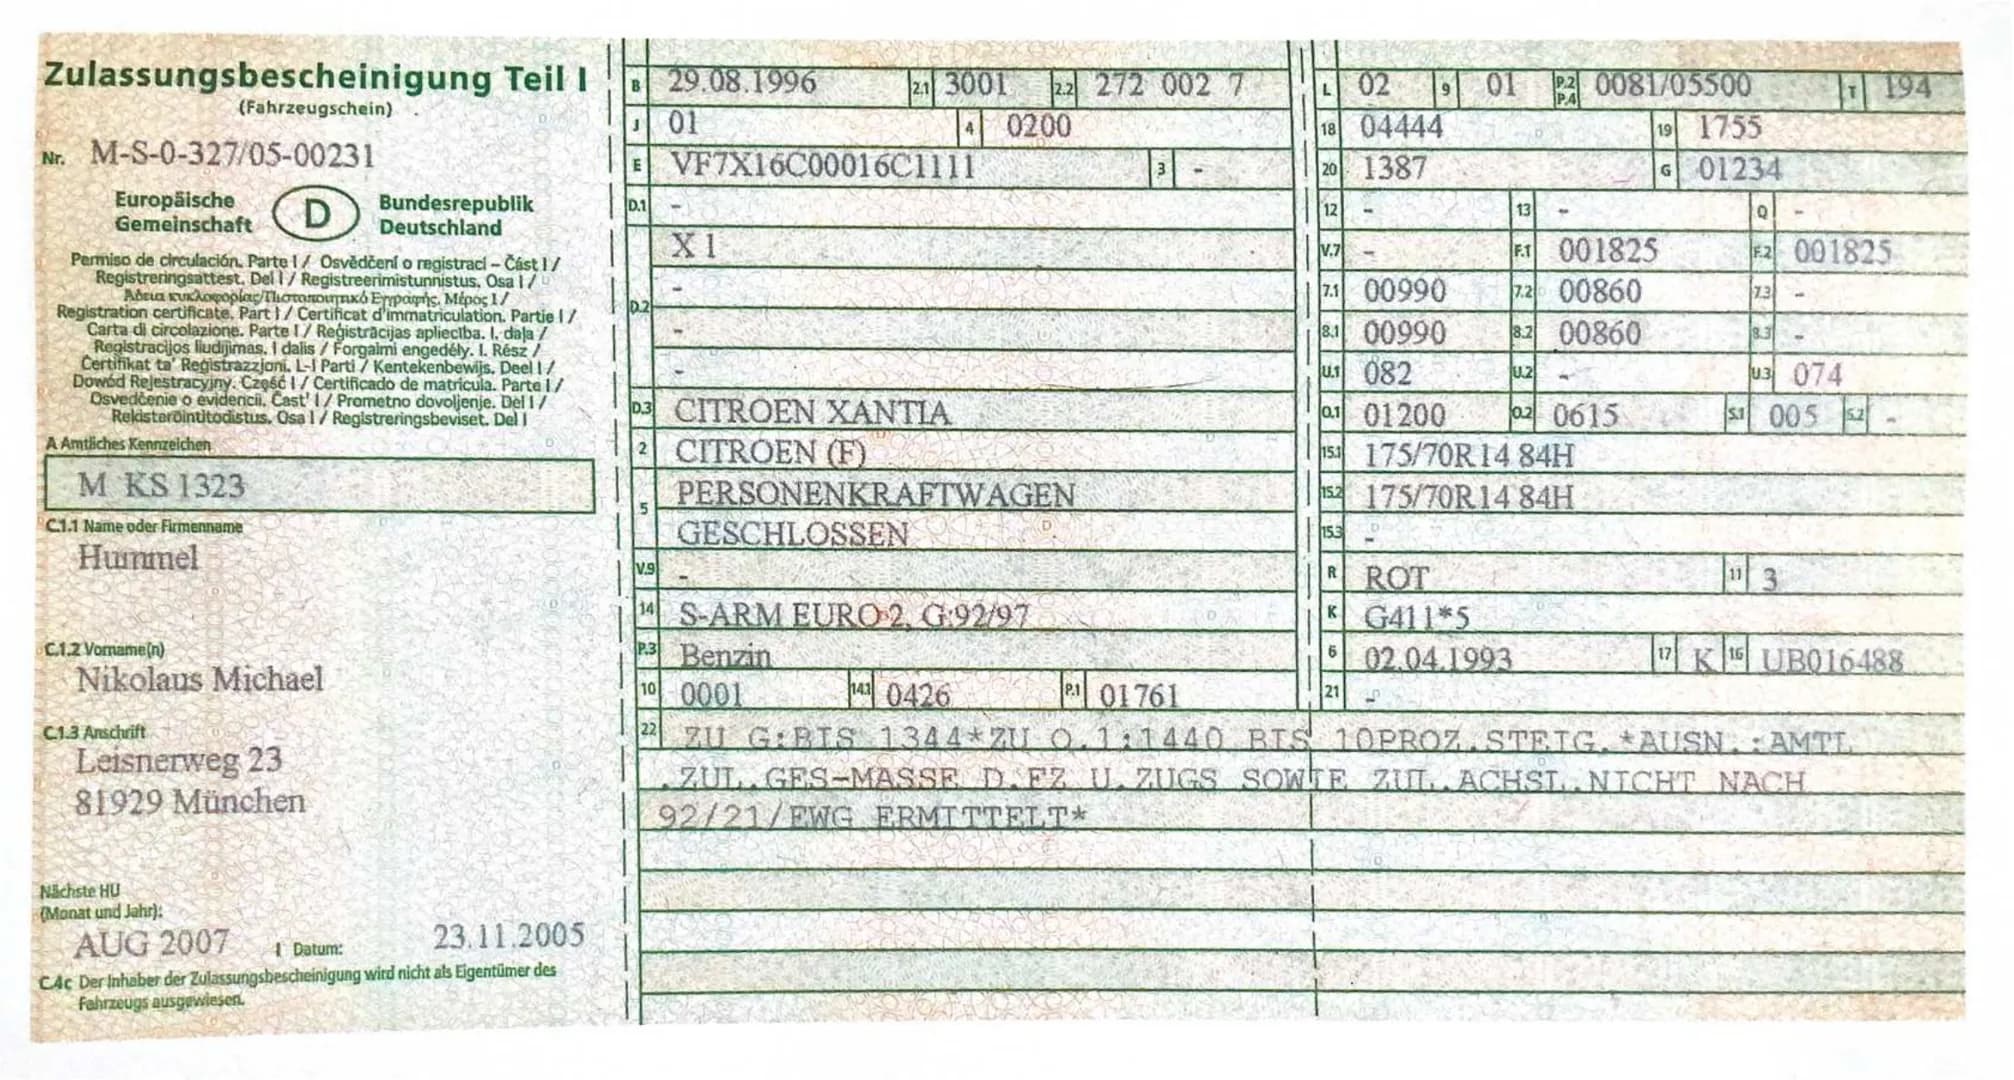 Zulassungsbescheinigung Teil I
(Fahrzeugschein)
Nr. M-S-0-327/05-00231
Europäische Gemeinschaft
D
Bundesrepublik Deutschland
Permiso de circulación. Parte I / Osvědčení o registraci – Část I /
Registreringsattest. Del I / Registreerimistunnistus. Osa I /
Άδεια κυκλοφορίας/Πιστοποιητικό Εγγραφής. Μέρος I /
Registration certificate. Part I / Certificat d'immatriculation. Partie I /
Carta di circolazione. Parte I / Reģistrācijas apliecība. I. daļa /
Registracijos liudijimas. I dalis / Forgalmi engedély. I. Rész /
Ċertifikat ta' Reġistrazzjoni. L-I Parti / Kentekenbewijs. Deel I /
Dowód Rejestracyjny. Część I / Certificado de matrícula. Parte I /
Osvedčenie o evidencii. Časť I / Prometno dovoljenje. Del I /
Rekisteröintitodistus. Osa I / Registreringsbeviset. Del I
A Amtliches Kennzeichen
M KS 1323
C.1.1 Name oder Firmenname
Hummel
C.1.2 Vorname(n)
Nikolaus Michael
C.1.3 Anschrift
Leisnerweg 23
81929 München
Nächste HU
(Monat und Jahr):
AUG 2007 I Datum: 23.11.2005
C.4c Der Inhaber der Zulassungsbescheinigung wird nicht als Eigentümer des
Fahrzeugs ausgewiesen.
B 29.08.1996 2.1 3001 2.2 272 002 7
J 01 4 0200
E VF7X16C00016C1111 3 -
D.1 -
X 1
D.2 -
-
-
D.3 CITROEN XANTIA
2 CITROEN (F)
5 PERSONENKRAFTWAGEN
GESCHLOSSEN
V.9 -
14 S-ARM EURO 2, G:92/97
P.3 Benzin
10 0001 14.1 0426 P.1 01761
L 02 9 01 P.2 P.4 0081/05500 T 194
18 04444 19 1755
20 1387 G 01234
12 - 13 - Q -
V.7 - F.1 001825 F.2 001825
7.1 00990 7.2 00860 7.3 -
8.1 00990 8.2 00860 8.3 -
U.1 082 U.2 - U.3 074
O.1 01200 O.2 0615 S.1 005 S.2 -
15.1 175/70R14 84H
15.2 175/70R14 84H
15.3 -
R ROT 11 3
K G411*5
6 02.04.1993 17 K 16 UB016488
21 -
22 ZU G:BIS 1344*ZU O.1:1440 BIS 10PROZ.STEIG.*AUSN.:AMTL
.ZUL.GES-MASSE D.FZ U.ZUGS SOWIE ZUL.ACHSL.NICHT NACH
92/21/EWG ERMITTELT*